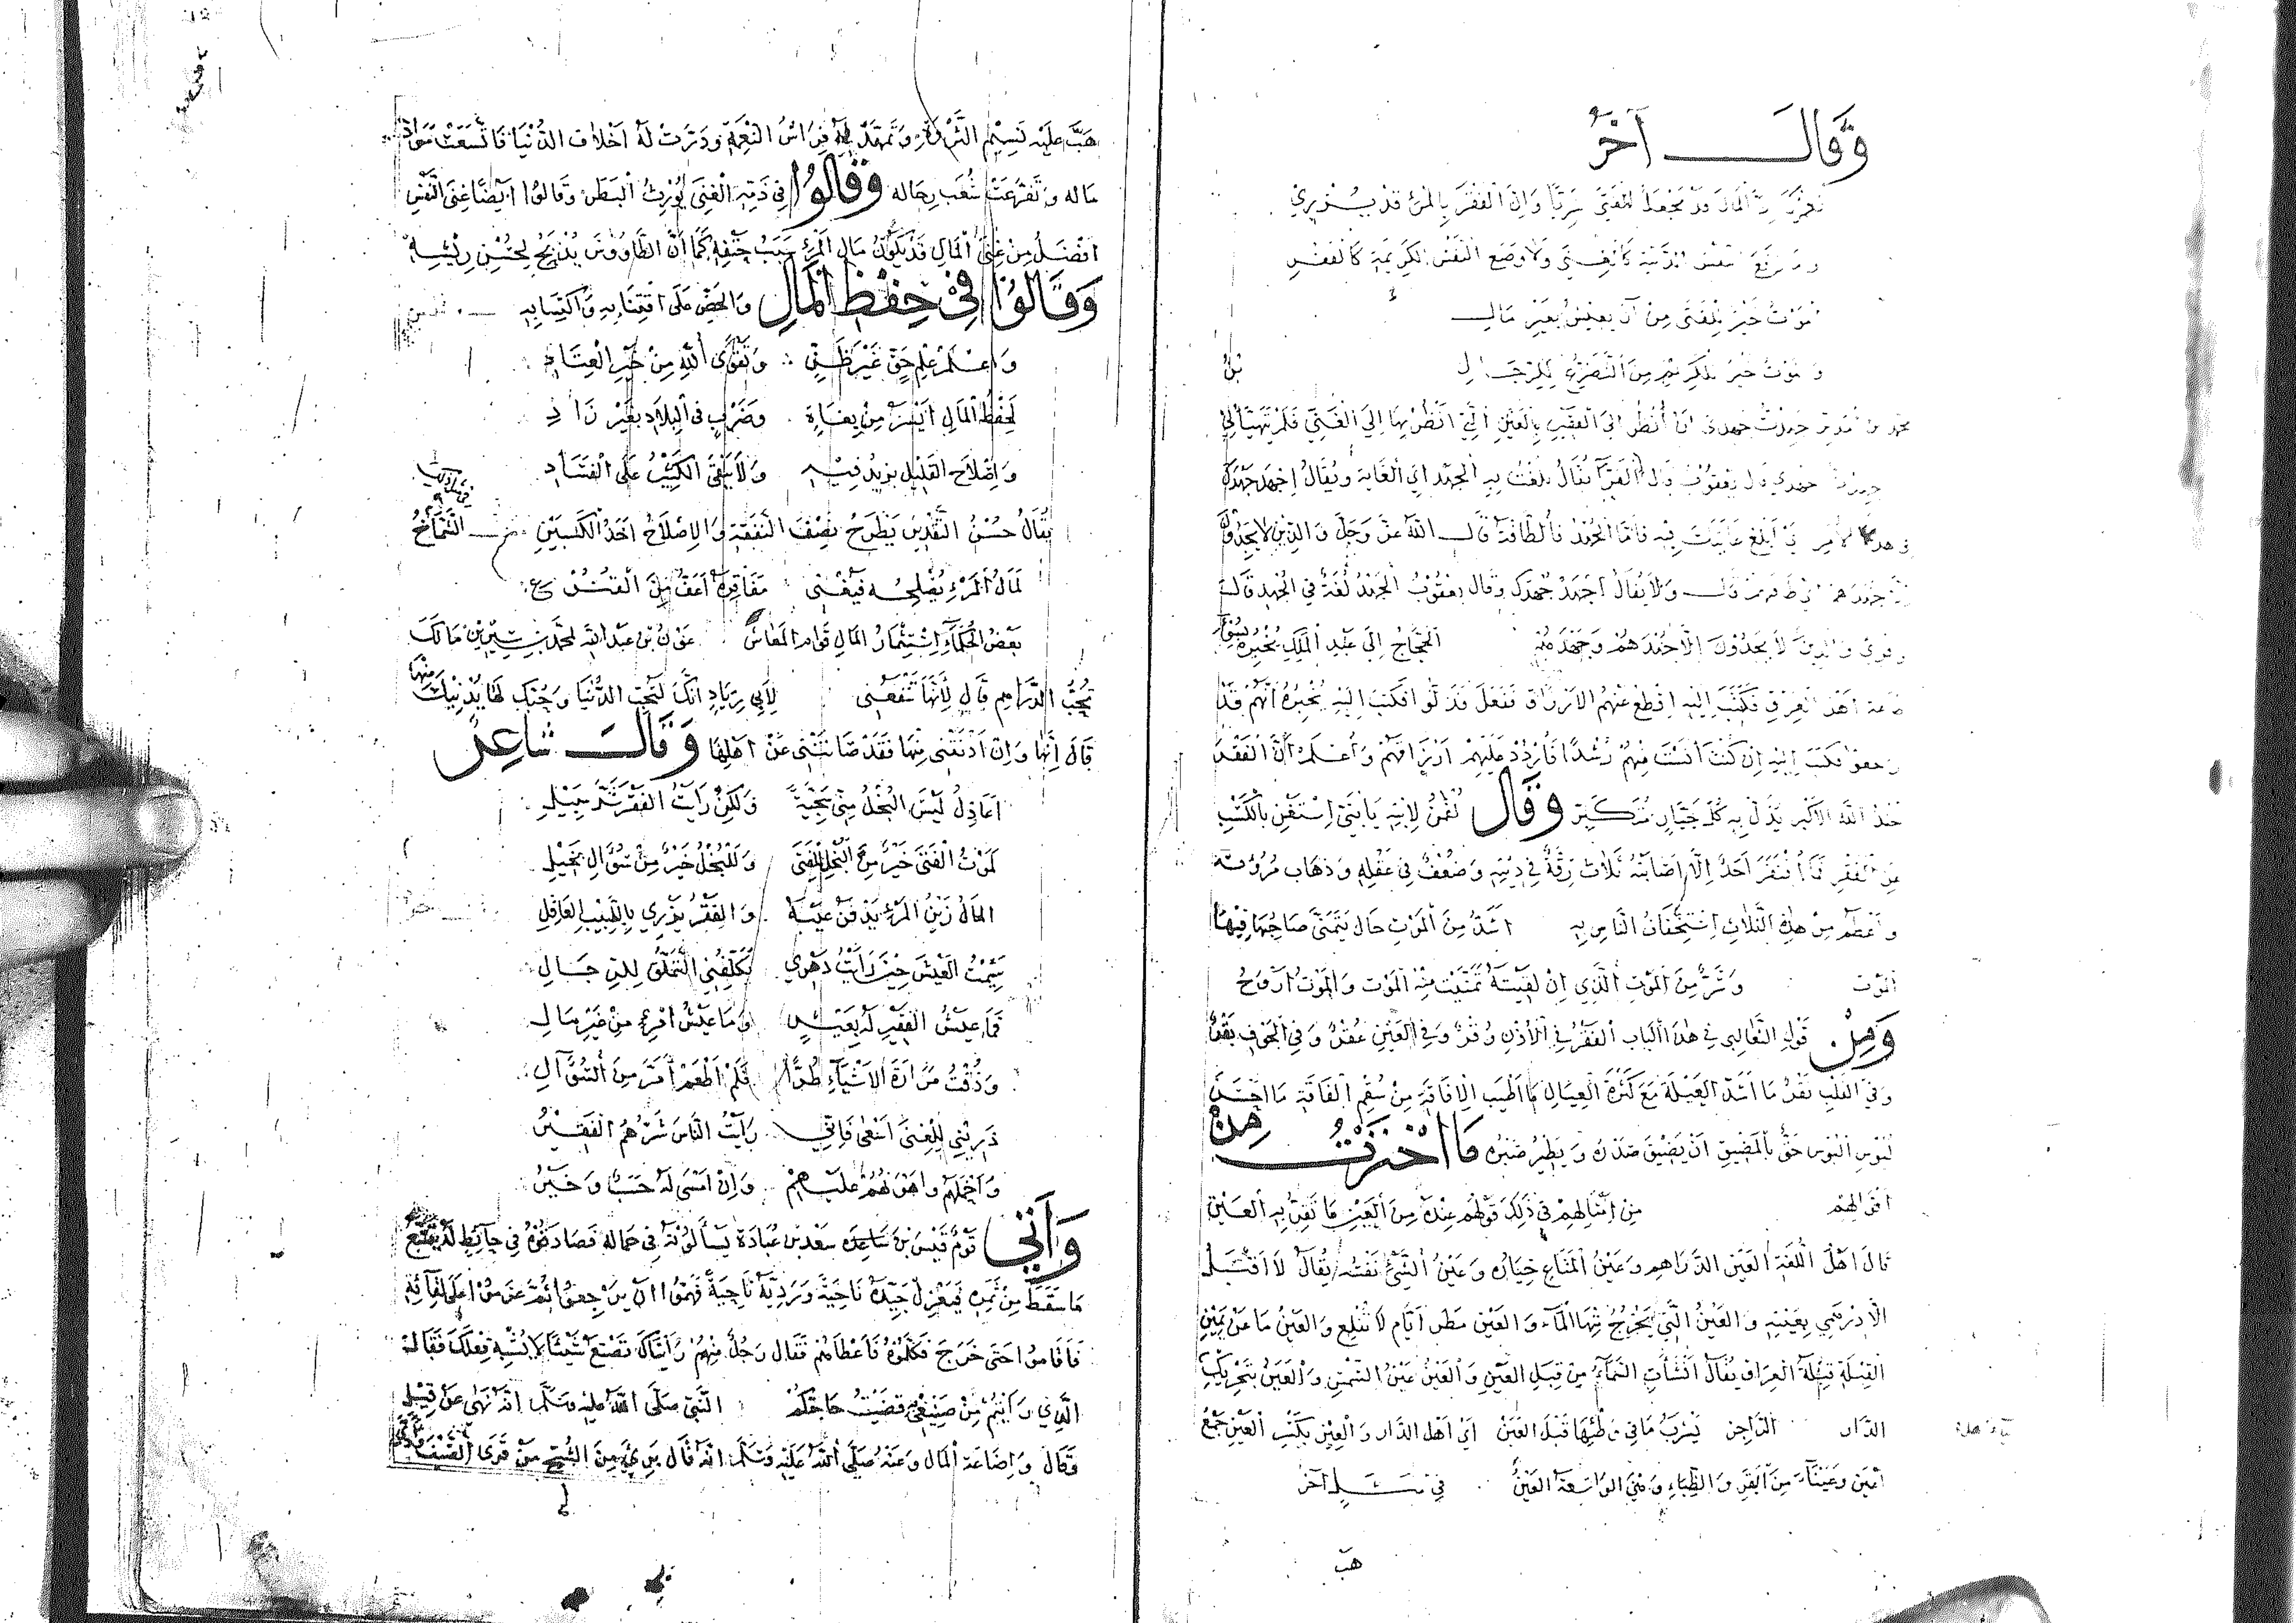 وقال آخر
المال قد يجعل الفتى سريا وان الفقر بالمرء قد يزري
النفس الدنية كالغنى ولا وضع النفس الكريمة كالفقر
موت خير للفتى من ان يعيش بغير مال
والموت خير للكريم من التضرع للرجال
جهدت جهدي ان انظر الى الفقير بالعين التي انظر بها الى الغني فلم يتهيأ لي
جهدي قال يعقوب قال الفرا يقال بلغت به الجهد اي الغاية ويقال اجهد جهدك
في هذا الامر اي ابلغ غايتك فيه فاما الجهد فالطاقة قال الله عز وجل والذين لا يجدون
الا جهدهم اي طاقتهم قال ولا يقال اجهد جهدك وقال يعقوب الجهد لغة في الجهد قال
وقرئ والذين لا يجدون الا جهدهم وجهدهم الحجاج الى عبد الملك يخبره بسوء
طاعة اهل العراق فكتب اليه اقطع عنهم الارزاق ففعل فذلوا فكتب اليه يخبره انهم قد
فكتب اليه ان كنت انست منهم رشدا فازدد عليهم ارزاقهم واعلم ان الفقر
جند الله الاكبر يذل به كل جبار متكبر وقال لقمن لابنه يا بني استغن بالكسب
عن الفقر فما افتقر احد الا اصابته ثلاث رقة في دينه وضعف في عقله وذهاب مروته
واعظم من هذه الثلاث استخفاف الناس به اشد من الموت حال يتمنى صاحبها فيها
الموت وشر من الموت الذي ان لقيته تمنيت منه الموت والموت اروح
ومن قول الثعالبي في هذا الباب الفقر في الاذن وقر وفي العين عقر وفي الجوف بقر
وفي القلب نقر ما اشد العيلة مع كثرة العيال ما اطيب الافاقة من سقم الفاقة
لبوس البوس حق بالمضيق ان يضيق صدره ويطير صبره ما اخترت من
اقوالهم من امثالهم في ذلك قولهم عنده من العين ما تقر به العين
قال اهل اللغة العين الدراهم وعين المتاع خياره وعين الشئ نفسه يقال لا اقبل
الا درهمي بعينه والعين التي يخرج منها الماء والعين مطر ايام لا تقلع والعين ما عن يمين
القبلة قبلة العراق يقال انشأت السماء من قبل العين والعين عين الشمس والعين بتحريك
الدار الراجز يشرب ما في وطبها قبل العين اي اهل الدار والعين بكسر العين جمع
اعين وعيناء من البقر والظباء وهي الواسعة العين في مثل آخر
هب
هب عليه نسيم الثروة وتمهد له فراش النعمة ودرت له اخلاف الدنيا فاتسعت مواد
ماله وتفرعت شعب حاله وقالوا في ذمه الغنى يورث البطر وقالوا ايضا غنى النفس
افضل من غنى المال قد يكون مال المرء سبب حتفه كما ان الطاووس يذبح لحسن ريشه
وقالوا في حفظ المال والحض على اقتنايه واكتسابه
واعلم علم حق غير ظن وتقوى الله من خير العتاد
لحفظ المال ايسر من بغاة وضرب في البلاد بغير زاد
واصلاح القليل يزيد فيه ولا يبقى الكثير على الفساد
يقال حسن التقدير يطرح نصف النفقة والاصلاح احد الكسبين الشماخ
لمال المرء يصلحه فيغنى مفاقره اعف من القنوع
بعض الحكماء استثمار المال قوام المعاش عون بن عبد الله لمحمد بن سيرين مالك
تحب الدراهم قال لانها تنفعني لابي زياد انك لتحب الدنيا وحبك لها يدنيك منها
قال انها وان ادنتني منها فقد صانتني عن اهلها وقال شاعر
اعاذل ليس البخل مني سجية ولكن رايت الفقر شر سبيل
لموت الفتى خير من البخل للفتى وللبخل خير من سؤال بخيل
المال زين المرء يدفن عيبه والفقر يزري باللبيب العاقل
سئمت العيش حين رايت دهري يكلفني التملق للرجال
فما عيش الفقير له بعيش وما عيش امرئ من غير مال
وذقت مرارة الاشياء طرا فلم اطعم امر من السؤال
ذريني للغنى اسعى فاني رايت الناس شرهم الفقير
واخملهم واهونهم عليهم وان امسى له حسب وخير
واتى قوم قيس بن سعد بن عبادة يسألونه في حمالة فصادفوه في حائط له يتتبع
ما سقط من ثمره فيعزل جيده ناحية ورديه ناحية فهموا ان يرجعوا ثم عزموا على لقائه
فاقاموا حتى خرج فكلموه فاعطاهم فقال رجل منهم رأيناك تصنع شيئا لا يشبه فعلك فقال
الذي رأيتم من صنيعي قضيت حاجتكم النبي صلى الله عليه وسلم انه نهى عن قيل
وقال واضاعة المال وعنه صلى الله عليه وسلم انه قال بريء من الشح من قرى الضيف وادى